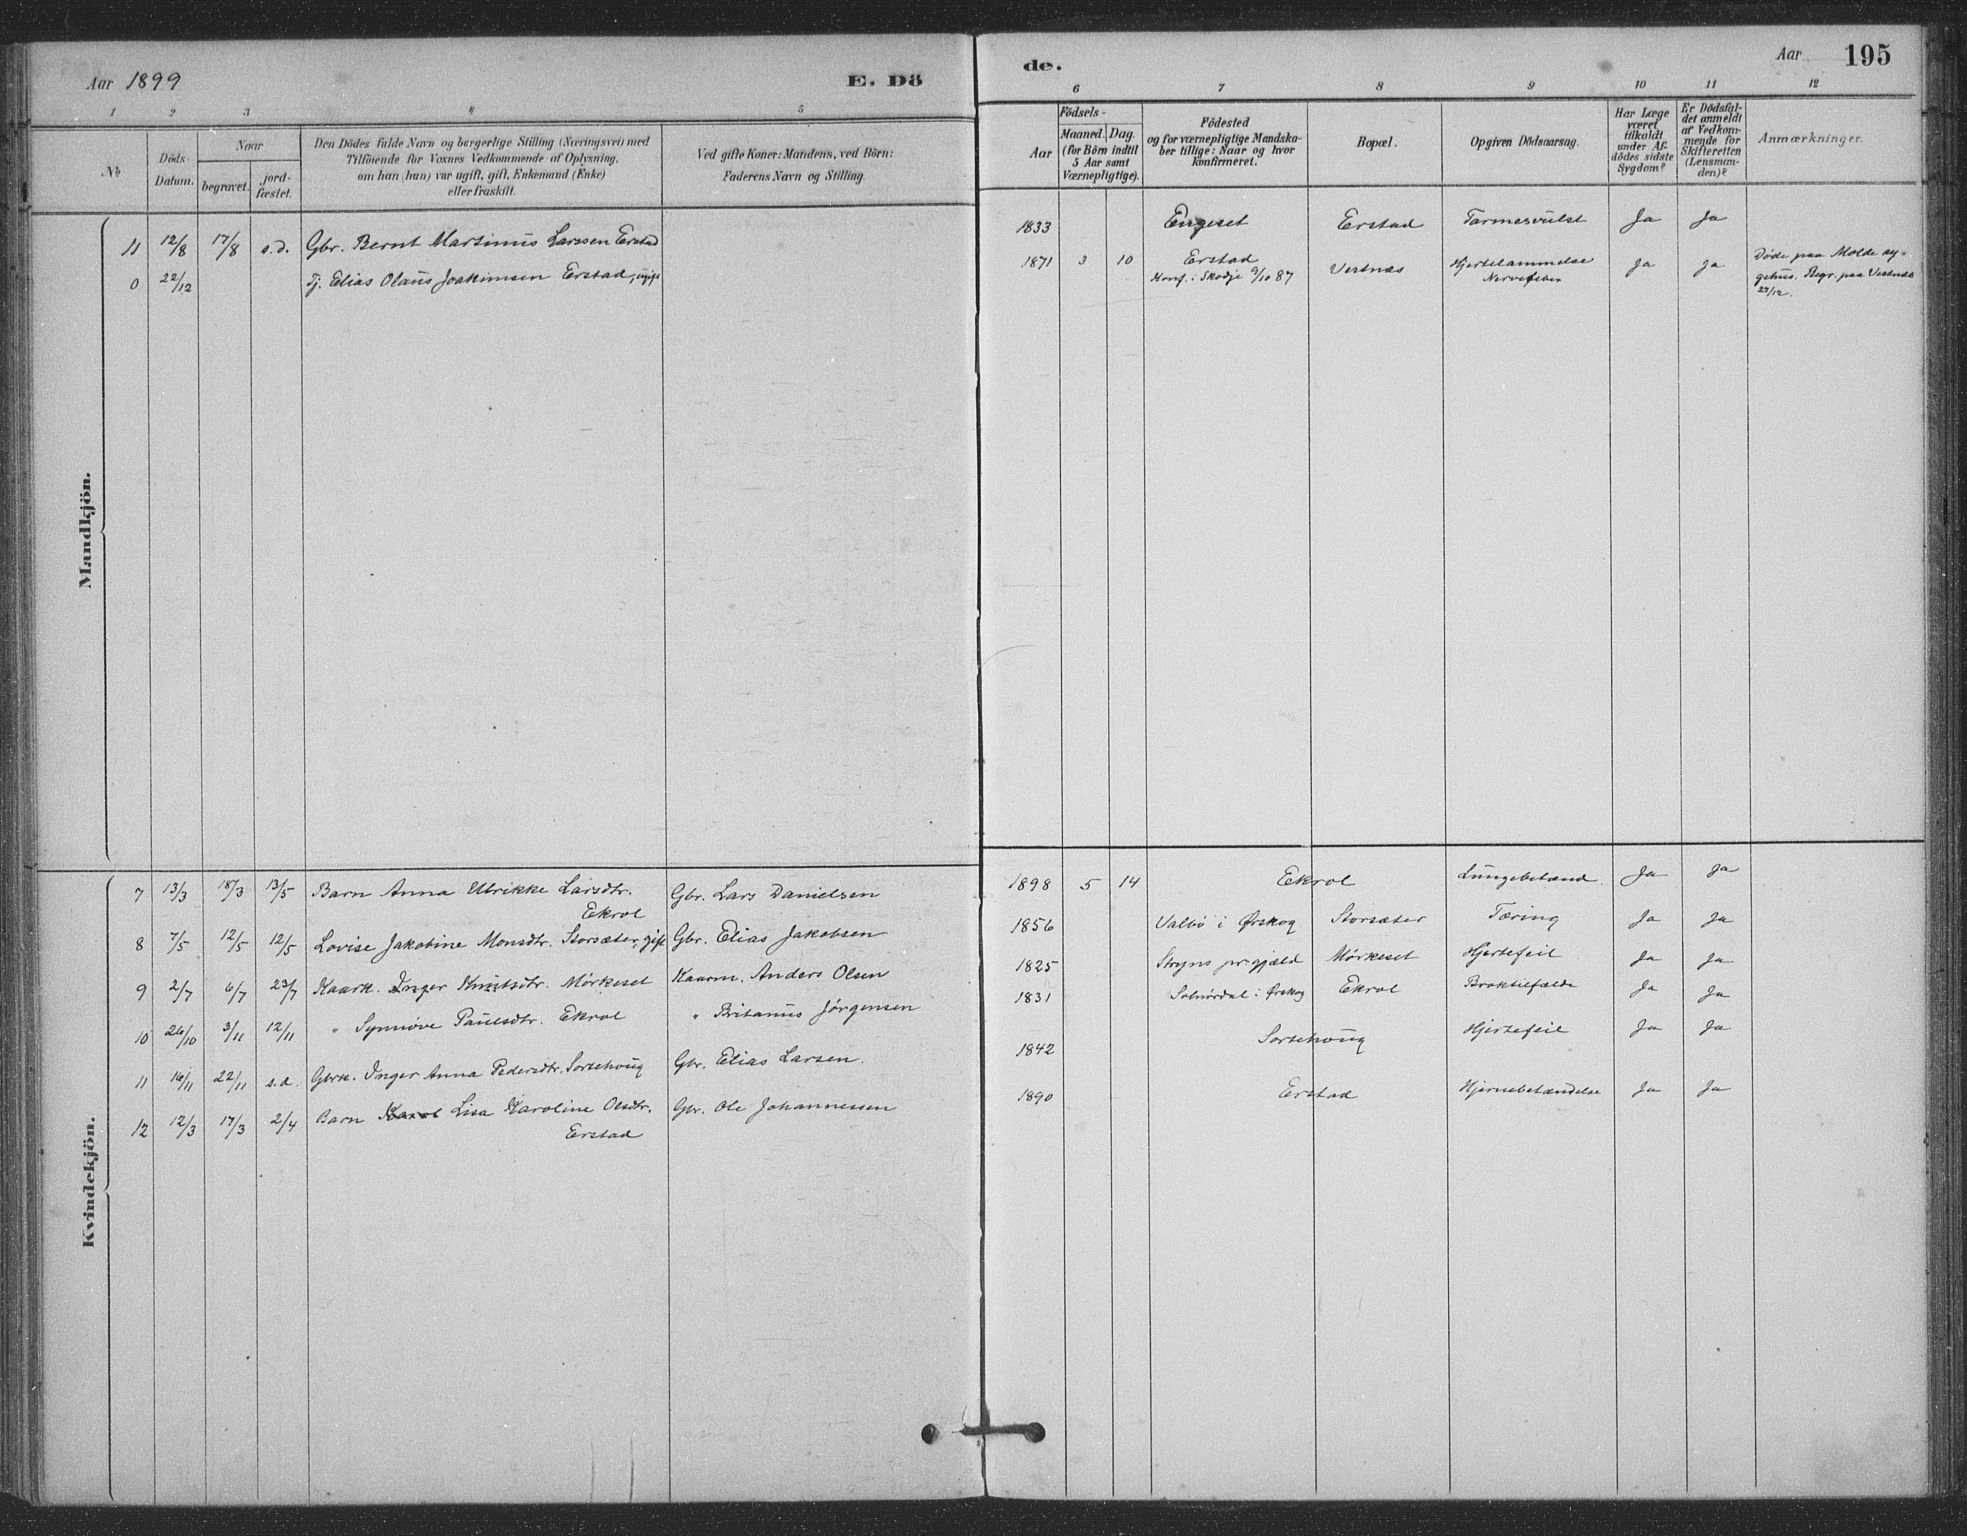 Aar 1899
E. Dö
de.
Aar
195
1 2 3 4 5
6 7 8 9 10 11 12
No
Döds-Datum.
Naar
begravet.
jord-fæstet.
Den Dödes fulde Navn og borgerlige Stilling (Næringsvei) med
Tilföiende for Voxnes Vedkommende af Oplysning,
om han (hun) var ugift, gift, Enkemand (Enke)
eller fraskilt.
Ved gifte Koner: Mandens, ved Börn:
Faderens Navn og Stilling.
Födsels-
Aar
Maaned. Dag.
(for Börn indtil
5 Aar samt
Værnepligtige).
Födested
og for værnepligtige Mandska-
ber tillige: Naar og hvor
konfirmeret.
Bopæl.
Opgiven Dödsaarsag.
Har Læge
været
tilkaldt
under Af-
dödes sidste
Sygdom?
Er Dödsfal-
det anmeldt
af Vedkom-
mende for
Skifteretten
(Lensman-
den)?
Anmærkninger.
Mandkjön.
11 12/8 17/8 s.d. Gbr. Bernt Martinus Larssen Erstad 1833 Engeset Erstad Tarmesvulst Ja Ja
0 22/12 Tj. Elias Olaus Joakimsen Erstad, ugift 1871 3 10 Erstad Vestnæs Hjertelammelse Ja Ja Døde paa Molde sy-
Konf. i Skodje 9/10 87 Nervefeber gehus. Begr. paa Vestnæs
29/12.
Kvindekjön.
7 13/3 18/3 13/5 Barn Anna Ulrikke Larsdtr. Gbr. Lars Danielsen 1898 5 14 Ekrol Lungebetænd. Ja Ja
Ekrol
8 7/5 12/5 12/5 Lovise Jakobine Monsdtr. Storsæter, gift Gbr. Elias Jakobsen 1856 Valbø i Ørskog Storsæter Tæring Ja Ja
9 2/7 6/7 23/7 Kaark. Inger Knutsdtr. Mørkeset Kaarm. Anders Olsen 1825 Stryns pr.gjæld Mørkeset Hjertefeil Ja Ja
10 26/10 3/11 12/11 " Synnøve Paulsdtr. Ekrol " Britanus Jørgensen 1831 Solnørdal i Ørskog Ekrol Broktilfælde Ja Ja
11 16/11 22/11 s.d. Gbrk. Inger Anna Pedersdtr. Sortehoug Gbr. Elias Larsen. 1842 Sortehoug Hjertefeil Ja Ja
12 12/3 17/3 2/4 Barn Karol Lisa Karoline Olsdtr. Gbr. Ole Johannessen 1890 Erstad Hjernebetændelse Ja Ja
Erstad